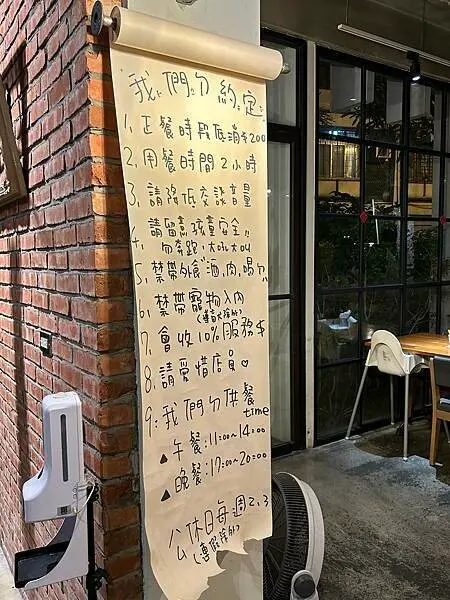 我們ㄉ約定
1. 正餐時段低消$200
2. 用餐時間2小時
3. 請降低交談音量
4. 請留意孩童安全!!
勿奔跑,大吼大叫
5. 禁帶外食"酒,肉,喝ㄉ
6. 禁帶寵物入內
(導盲犬除外)
7. 會收10%服務$
8. 請愛惜店員♡
9. 我們ㄉ供餐
time
▲午餐:11:00~14:00
▲晚餐:17:00~20:00
公休日每週2,3
(連假除外)